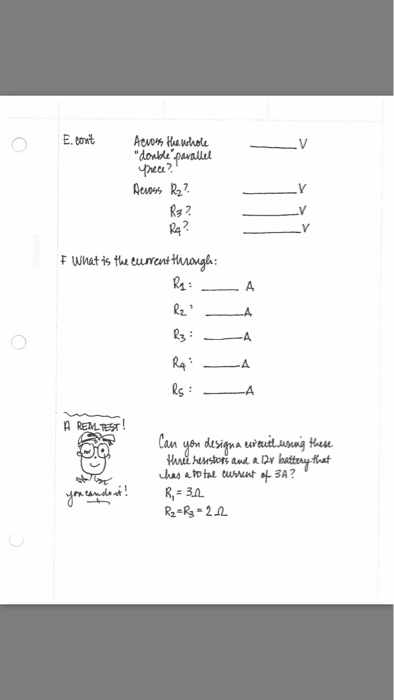 E. con't Across the whole ____ V
"double" parallel
piece?
Across R2? ____ V
R3? ____ V
R4? ____ V
F What is the current through:
R1: ____ A
R2: ____ A
R3: ____ A
R4: ____ A
R5: ____ A
A REAL TEST!
Can you design a circuit using these
three resistors and a 12v battery that
has a total current of 3A?
you can do it!
R1 = 3Ω
R2=R3 = 2Ω